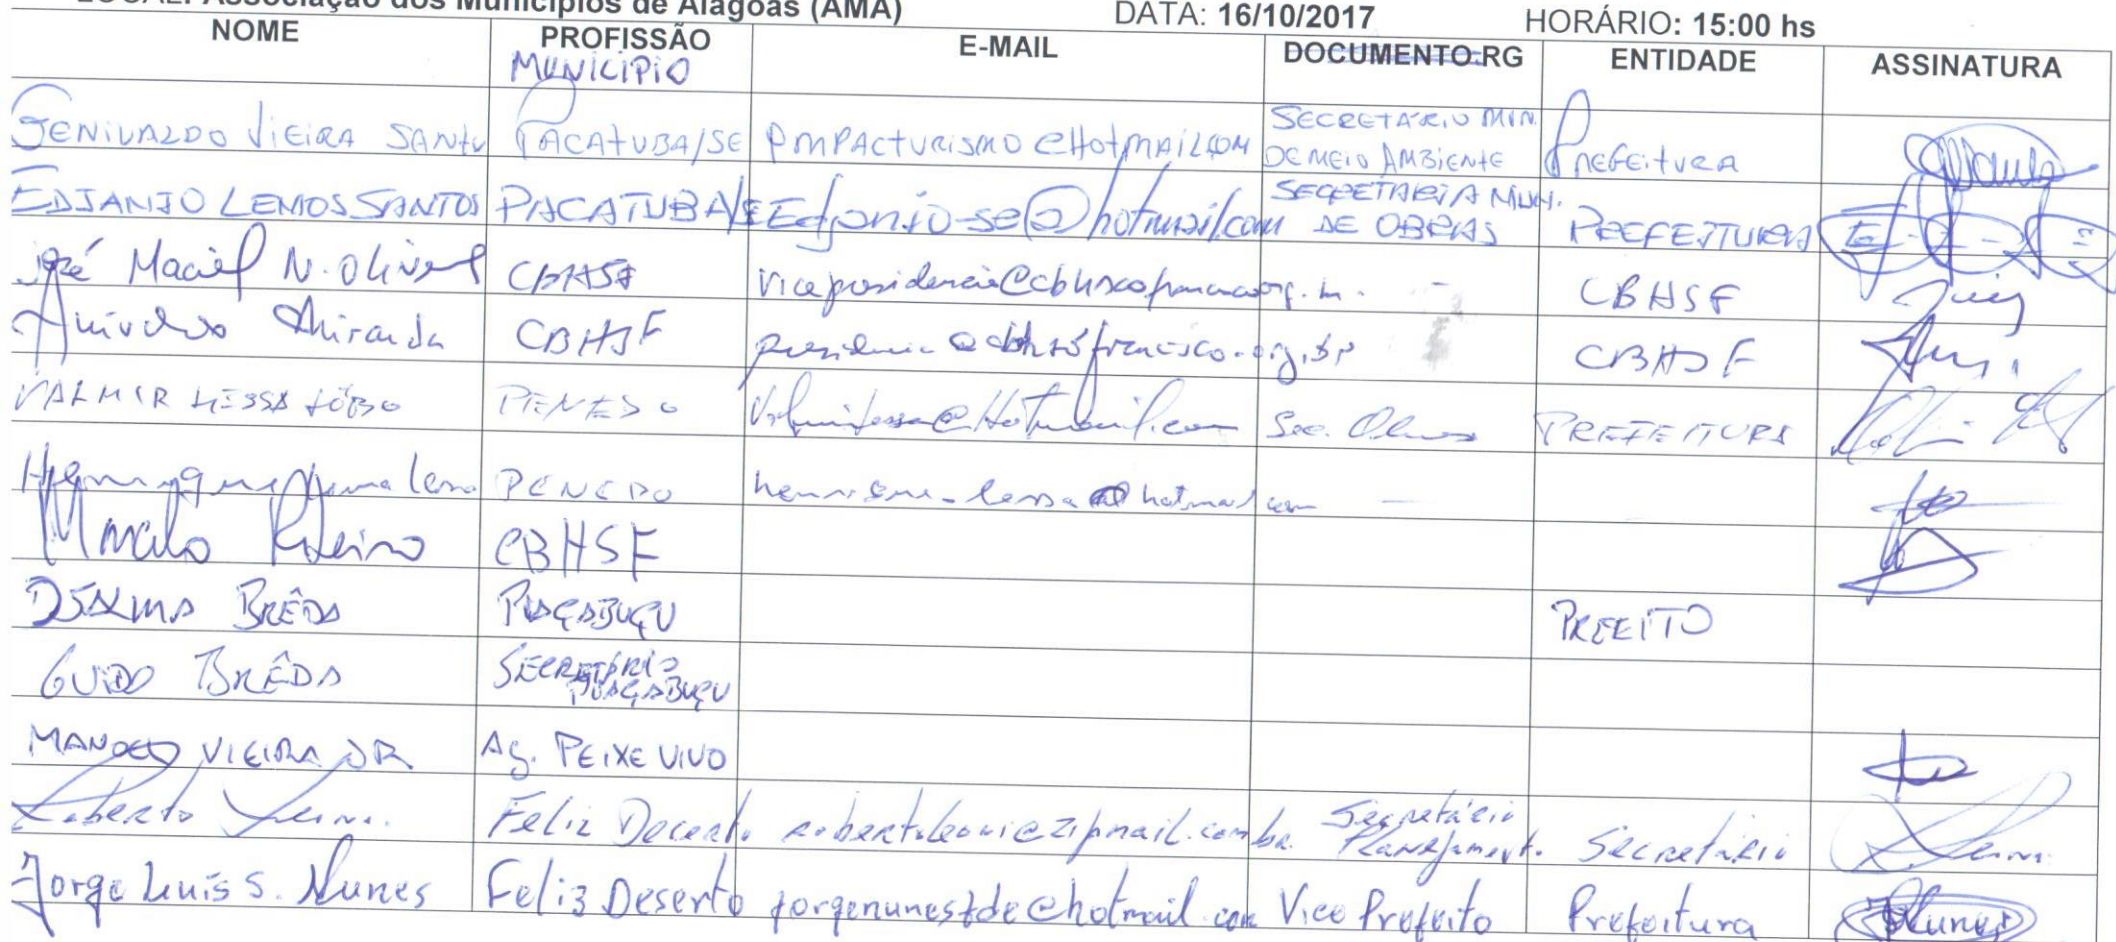 LOCAL: Associação dos Municípios de Alagoas (AMA) DATA: 16/10/2017 HORÁRIO: 15:00 hs
NOME PROFISSÃO E-MAIL DOCUMENTO RG ENTIDADE ASSINATURA
MUNICÍPIO
GENIVALDO VIEIRA SANTOS PACATUBA/SE PMPACTURISMO@HOTMAIL.COM SECRETÁRIO MUN. DE MEIO AMBIENTE Prefeitura
EDJANIO LEMOS SANTOS PACATUBA/SE Edjanio-se@hotmail.com SECRETARIA MUN. DE OBRAS PREFEITURA
José Maciel N. Oliveira CBHSF CBHSF
Anivaldo Miranda CBHSF presidencia@cbhsaofrancisco.org.br CBHSF
VALMIR LESSA LÔBO PENEDO Valmirlessa@Hotmail.com Sec. Obras PREFEITURA
Henrique Lessa PENEDO henrique-lessa@hotmail.com -
Marcelo Ribeiro CBHSF
DJALMA BRÊDA PIAÇABUÇU PREFEITO
GUIDO BRÊDA SECRETÁRIO PIAÇABUÇU
MANOEL VIEIRA JR AG. PEIXE VIVO
Roberto Feliz Desert. Secretário Planejament. Secretário
Jorge Luis S. Nunes Feliz Deserto jorgenunesfde@hotmail.com Vice Prefeito Prefeitura Nunes